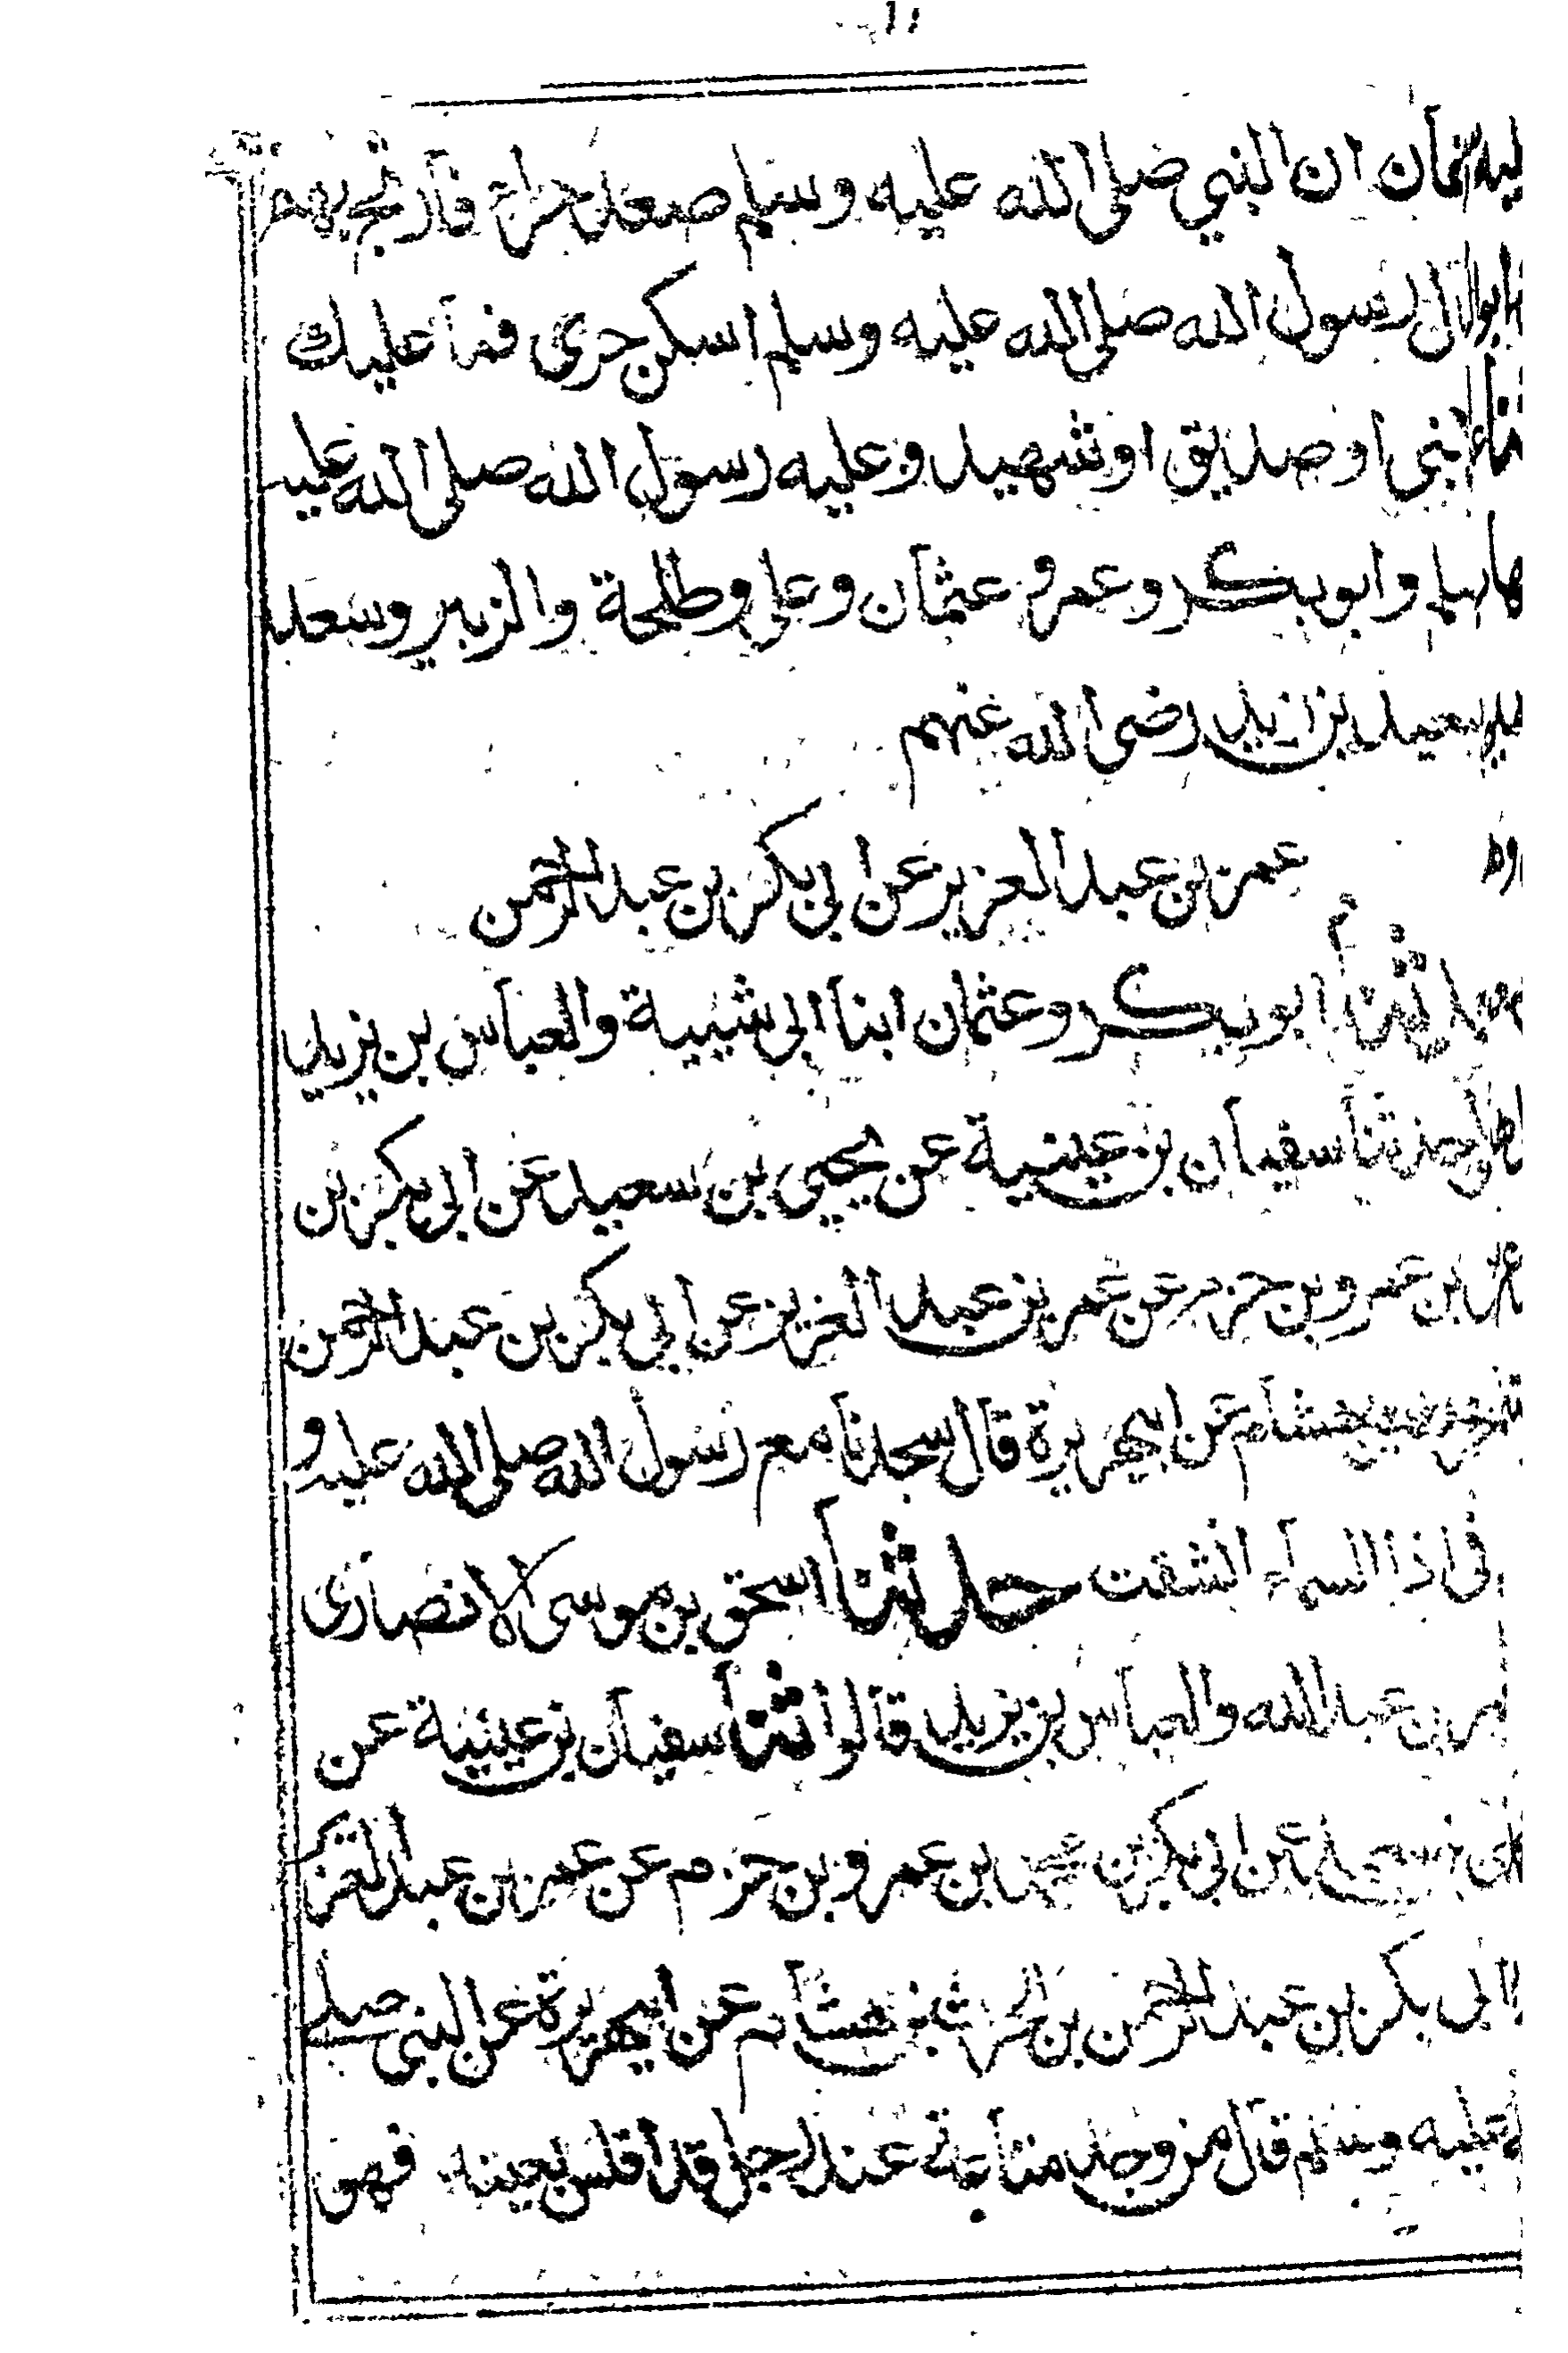 ان النبي صلى الله عليه وسلم صعد حراء فارتج بهم
رسول الله صلى الله عليه وسلم اسكن حرى فما عليك
نبي او صديق او شهيد وعليه رسول الله صلى الله عليه
وابو بكر وعمر وعثمان وعلي وطلحة والزبير وسعد
سعيد بن زيد رضى الله عنهم
عمر بن عبد العزيز عن ابي بكر بن عبد الرحمن
ثنا ابو بكر وعثمان ابنا ابي شيبة والعباس بن يزيد
حدثنا سفيان بن عيينة عن يحيى بن سعيد عن ابي بكر بن
بن عمرو بن حزم عن عمر بن عبد العزيز عن ابي بكر بن عبد الرحمن
هشام عن ابيهريرة قال سجدنا مع رسول الله صلى الله عليه و
في اذا السماء انشقت حدثنا اسحق بن موسى الانصارى
بن عبد الله والعباس بن يزيد قالوا ثنا سفيان بن عيينة عن
عن ابي بكر بن محمد بن عمرو بن حزم عن عمر بن عبد العزيز
ابي بكر بن عبد الرحمن بن الحرث بن هشام عن ابيهريرة عن النبي صلى
عليه وسلم قال من وجد متاعه عند رجل قد افلس بعينه فهو